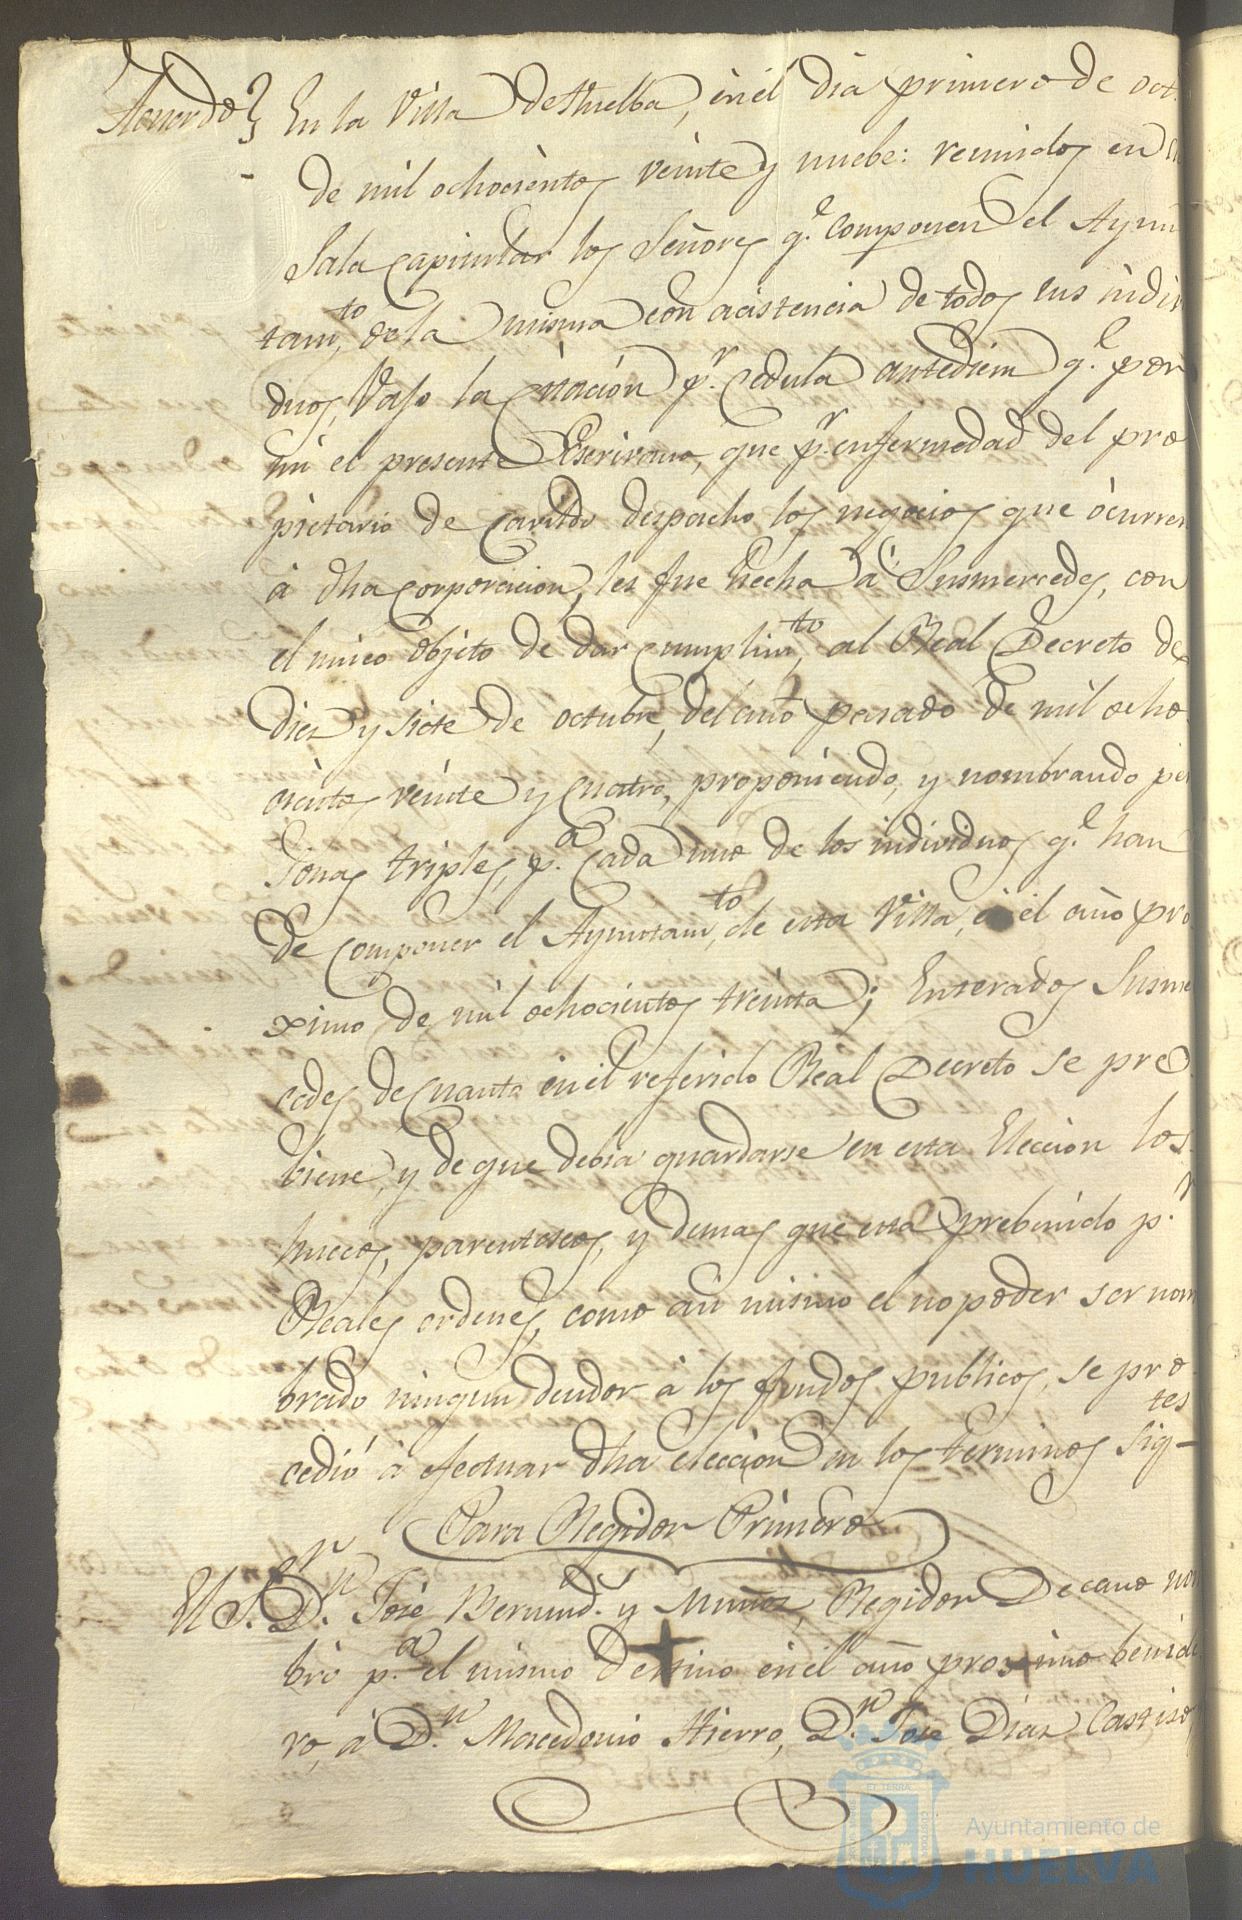 Acuerdo} En la Villa de Huelba, en el dia primero de oct.
de mil ochocientos veinte y nuebe: reunidos en
Sala capitular los Señores q.e componen el Ayun
tam.to de la misma con acistencia de todos sus indivi
duos, Vajo la citación p.r Cedula antediem q.e por
mi el presente Escrivano, que p.r enfermedad del pro
pietario de Cavildo despacho los negocios que ocurren
à dha corporacion, les fue hecha à Susmercedes, con
el unico objeto de dar cumplim.to al Real Decreto de
diez y siete de octubre, del año pasado de mil ocho
cientos veinte y cuatro, proponiendo, y nombrando per
sonas triples, p.a cada uno de los individuos q.e han
de componer el Ayuntam.to de esta Villa, en el año pro
ximo de mil ochocientos treinta; Enterados Susmer
cedes de cuanto en el referido Real Decreto se pre
biene, y de que debia guardarse en esta Eleccion los
huecos, parentescos, y demas que esta prebenido p.r
Reales ordenes, como asi mismo el no poder ser nom
brado ningun deudor à los fondos publicos, se pro
cedió à efectuar dha eleccion en los terminos sig.tes
Para Regidor Primero
El S.or D.n José Bermud.s y Muñoz, Regidor Decano nom
bró p.a el mismo destino en el año proximo benide
ro, à D.n Macedonio Hierro, D.n Jose Dias Castiso,
ET TERRA
Ayuntamiento de
HUELVA